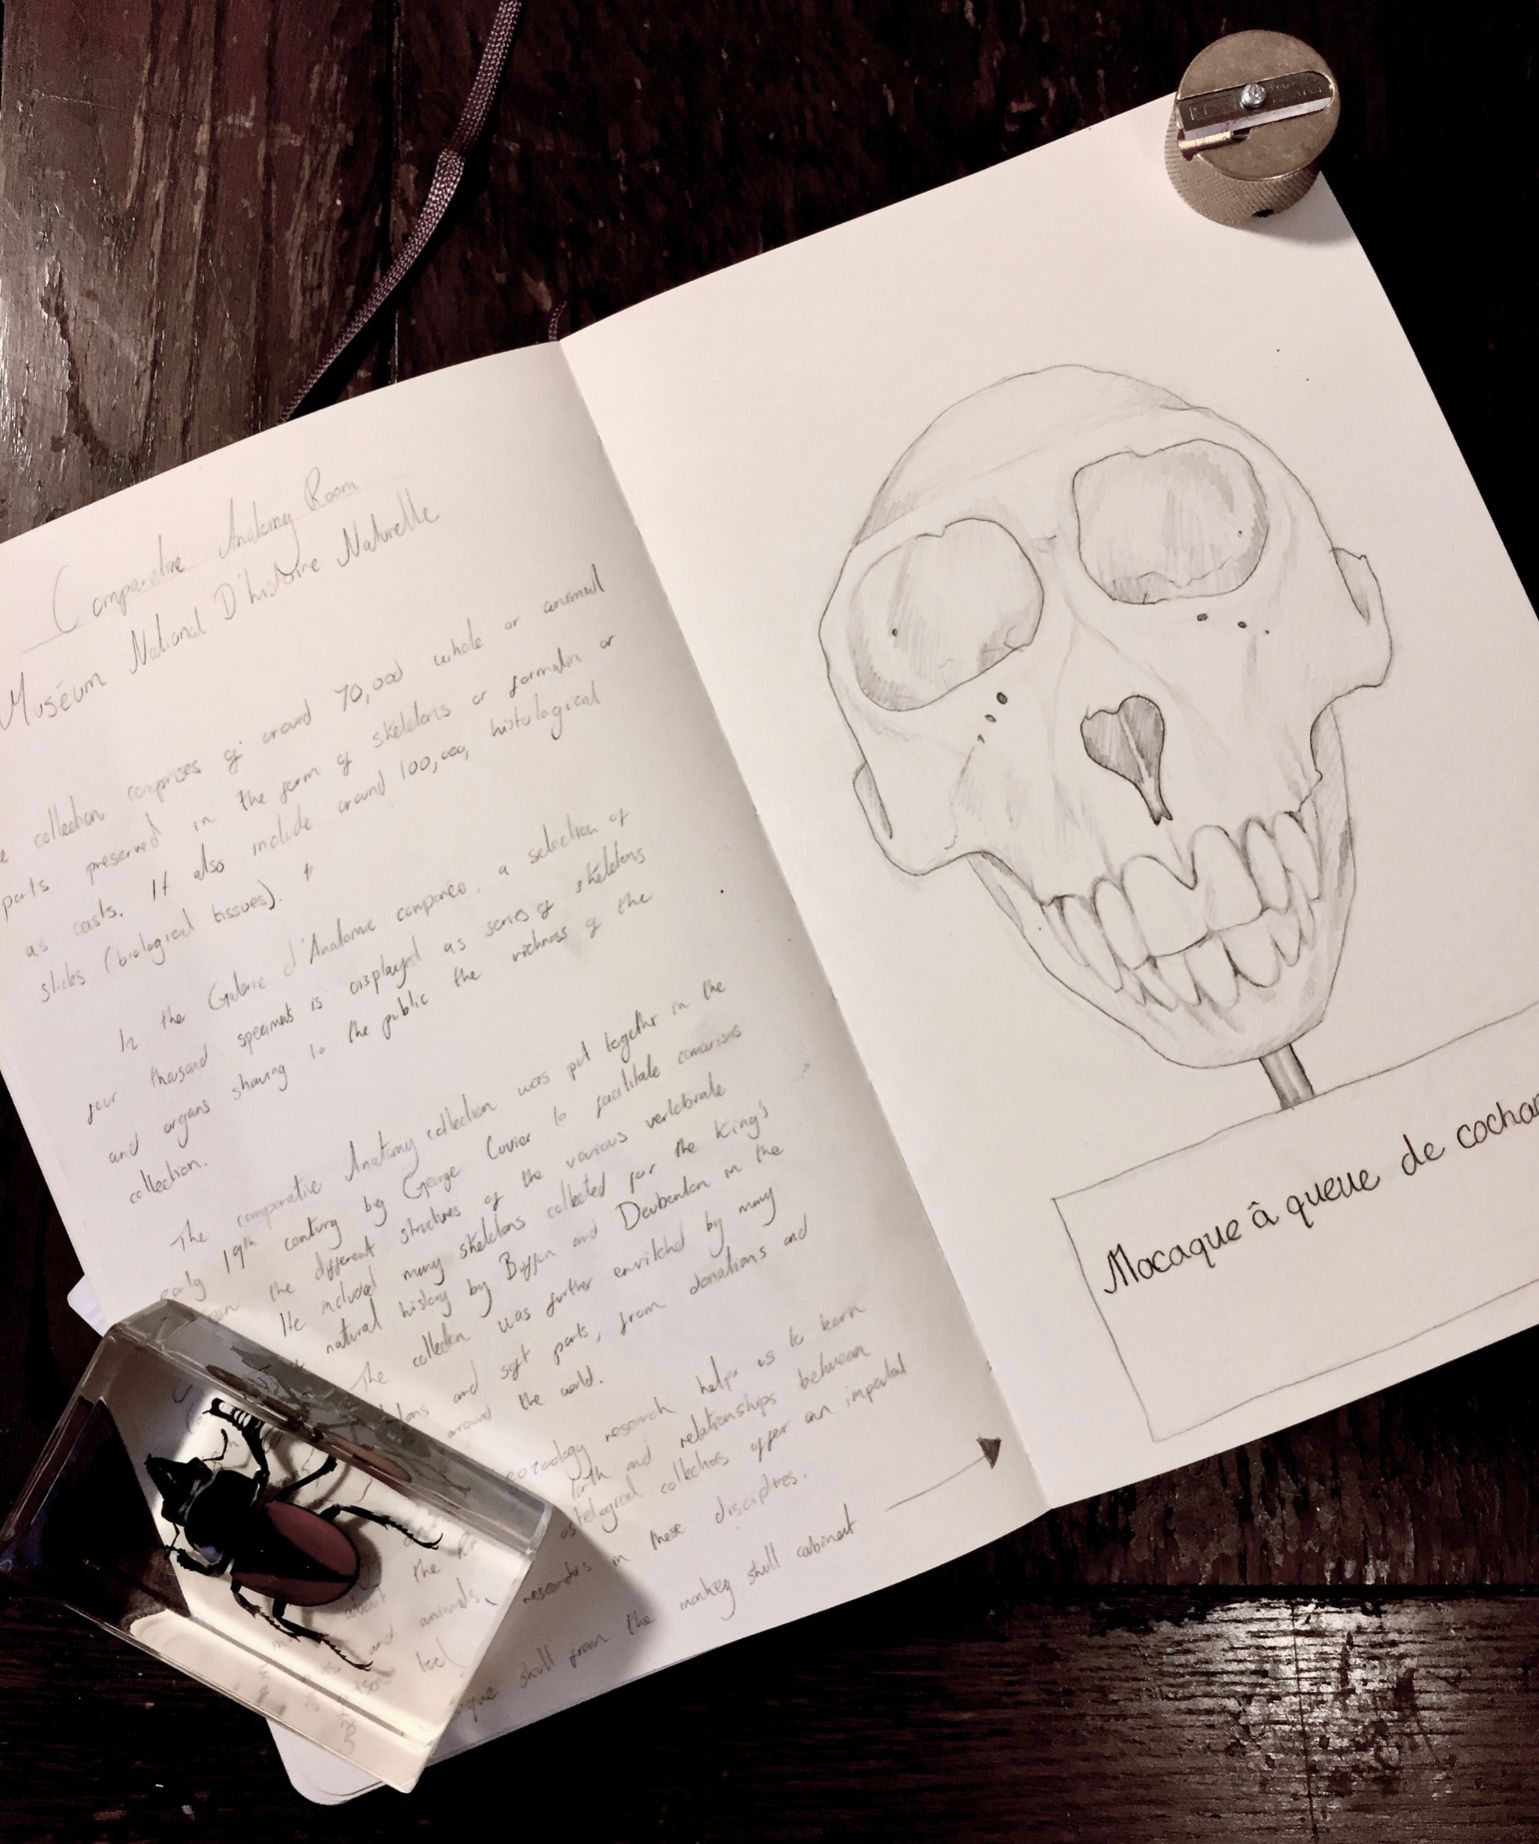 Comparative Anatomy Room
Muséum National D'histoire Naturelle
collection comprises of around 70,000 whole or animal
parts preserved in the form of skeletons or formalin or
as casts. It also include around 100,000 histological
slides (biological tissues).
In the Galerie d'Anatomie comparée, a selection of
four thousand specimens is displayed as series of skeletons
and organs showing to the public the richness of the
collection.
The comparative Anatomy collection was put together in the
early 19th century by George Cuvier to facilitate comparisons
the different structures of the various vertebrate
He included many skeletons collected for the King's
natural history by Buffon and Daubenton in the
The collection was further enritched by many
and soft parts, from donations and
around the world.
research helps us to learn
and relationships between
collections offer an important
about the
and animals, researches in these disciplines.
tool
skull from the monkey skull cabinet
Macaque à queue de